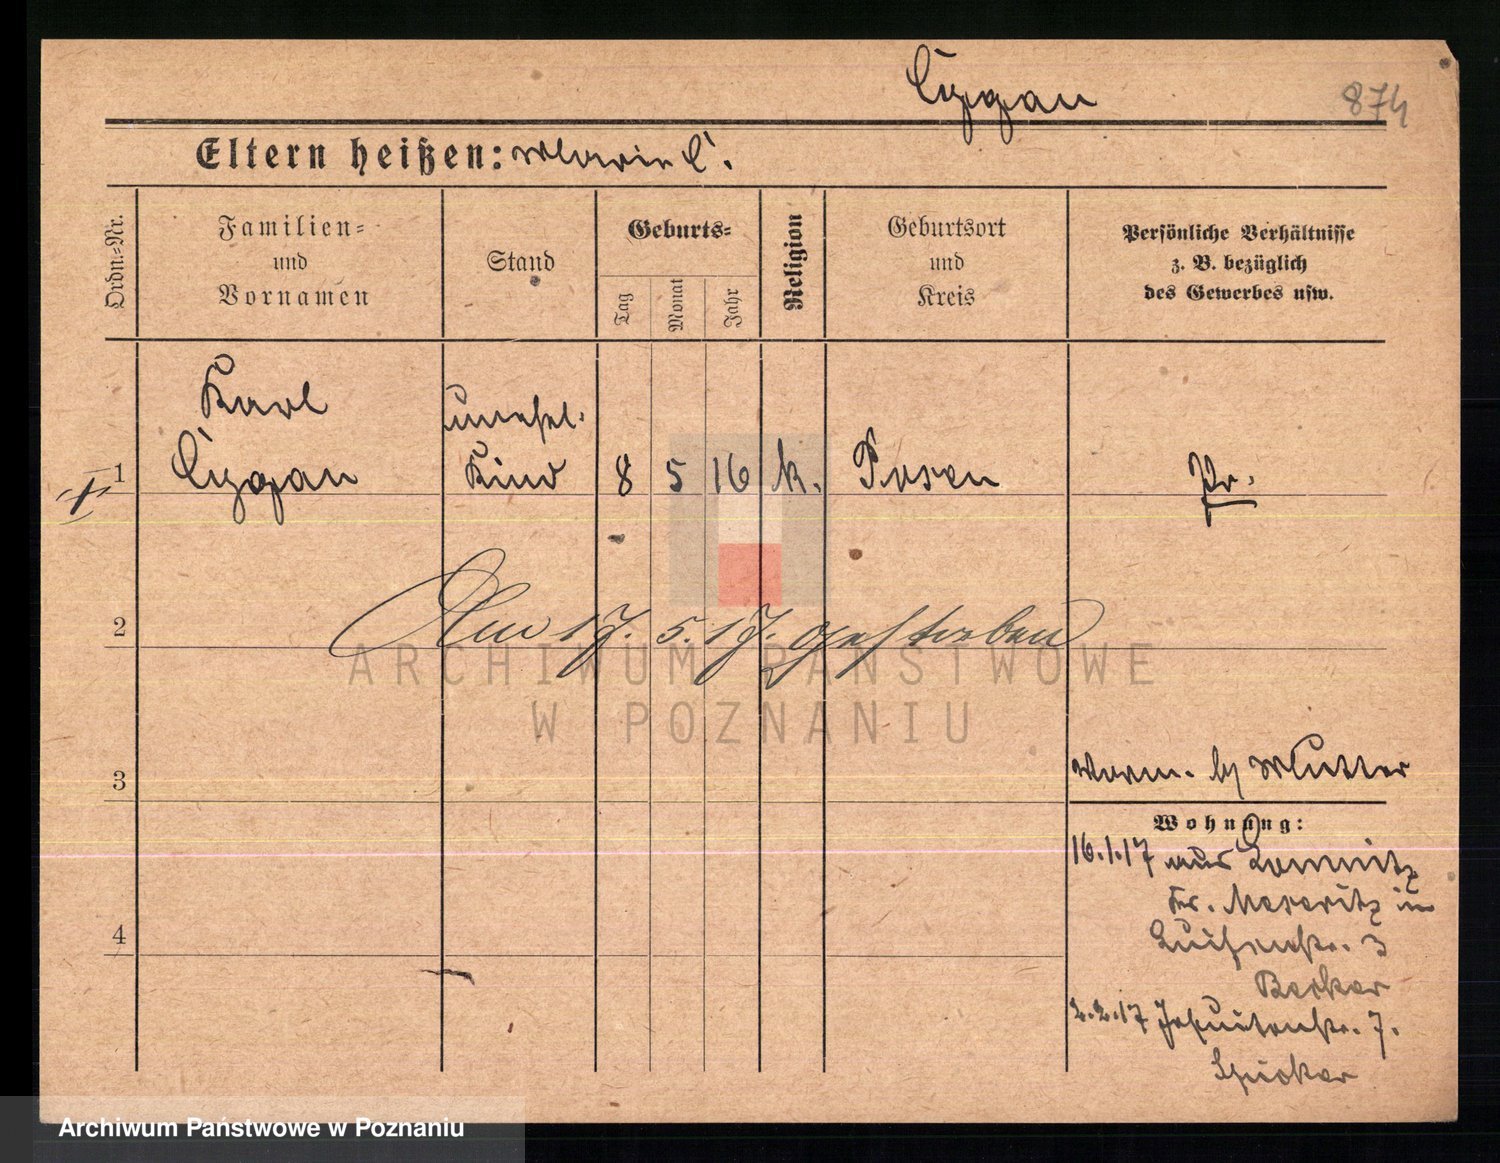 Cyggan
874
Eltern heißen: Marie C.
Ordn.-Nr.
Familien-
und
Vornamen
Stand
Geburts-
Tag
Monat
Jahr
Religion
Geburtsort
und
Kreis
Persönliche Verhältnisse
z. B. bezüglich
des Gewerbes usw.
Karl
unehel.
1 Cyggan Kind 8 5 16 k. Posen Pr.
Am 17. 5. 17. gestorben
2
ARCHIWUM PAŃSTWOWE
W POZNANIU
3
vorm. by Mutter
Wohnung:
16.1.17 aus Lomnitz
Kr. Meseritz in
Luisenstr. 3
4
Becker
2.2.17 Jesuitenstr. 7.
Archiwum Państwowe w Poznaniu